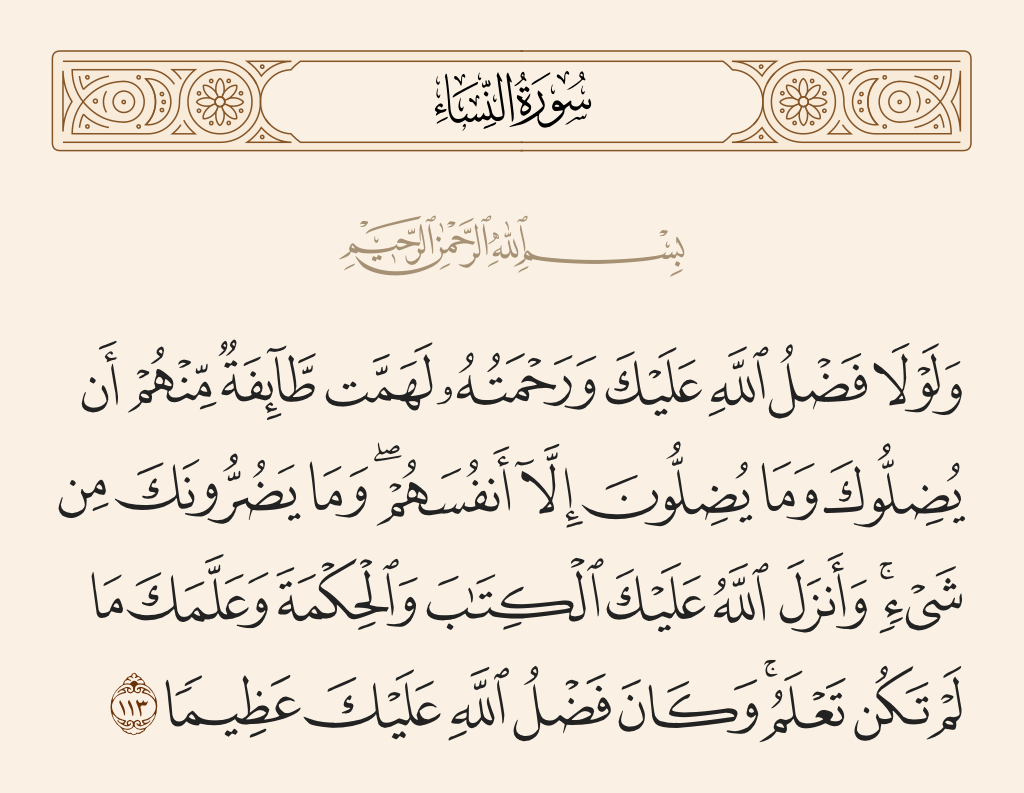 سُورَةُ النِّسَاءِ
بِسْمِ ٱللَّهِ ٱلرَّحْمَٰنِ ٱلرَّحِيمِ
وَلَوْلَا فَضْلُ ٱللَّهِ عَلَيْكَ وَرَحْمَتُهُۥ لَهَمَّت طَّآئِفَةٌ مِّنْهُمْ أَن
يُضِلُّوكَ وَمَا يُضِلُّونَ إِلَّآ أَنفُسَهُمْ ۖ وَمَا يَضُرُّونَكَ مِن
شَىْءٍ ۚ وَأَنزَلَ ٱللَّهُ عَلَيْكَ ٱلْكِتَٰبَ وَٱلْحِكْمَةَ وَعَلَّمَكَ مَا
لَمْ تَكُن تَعْلَمُ ۚ وَكَانَ فَضْلُ ٱللَّهِ عَلَيْكَ عَظِيمًا ١١٣